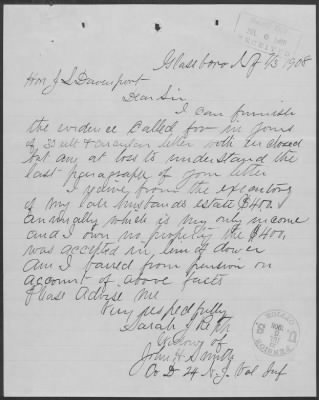 Glassboro N J 7/3 1908
Hon J L Davenport
Dear Sir
I can furnish
the evidence called for in yours
of letter with enclosed
but am at loss to understand the
last paragraph of your letter
I receive from the executors
of my late husbands estate $400.
annually which is my only income
and I own no property the $400.
was accepted in lieu of dower
Am I barred from pension on
account of above facts
Please Advise Me
Very respectfully
Sarah J
widow of
John H Smith
Co D 24 N. J. Vol Inf